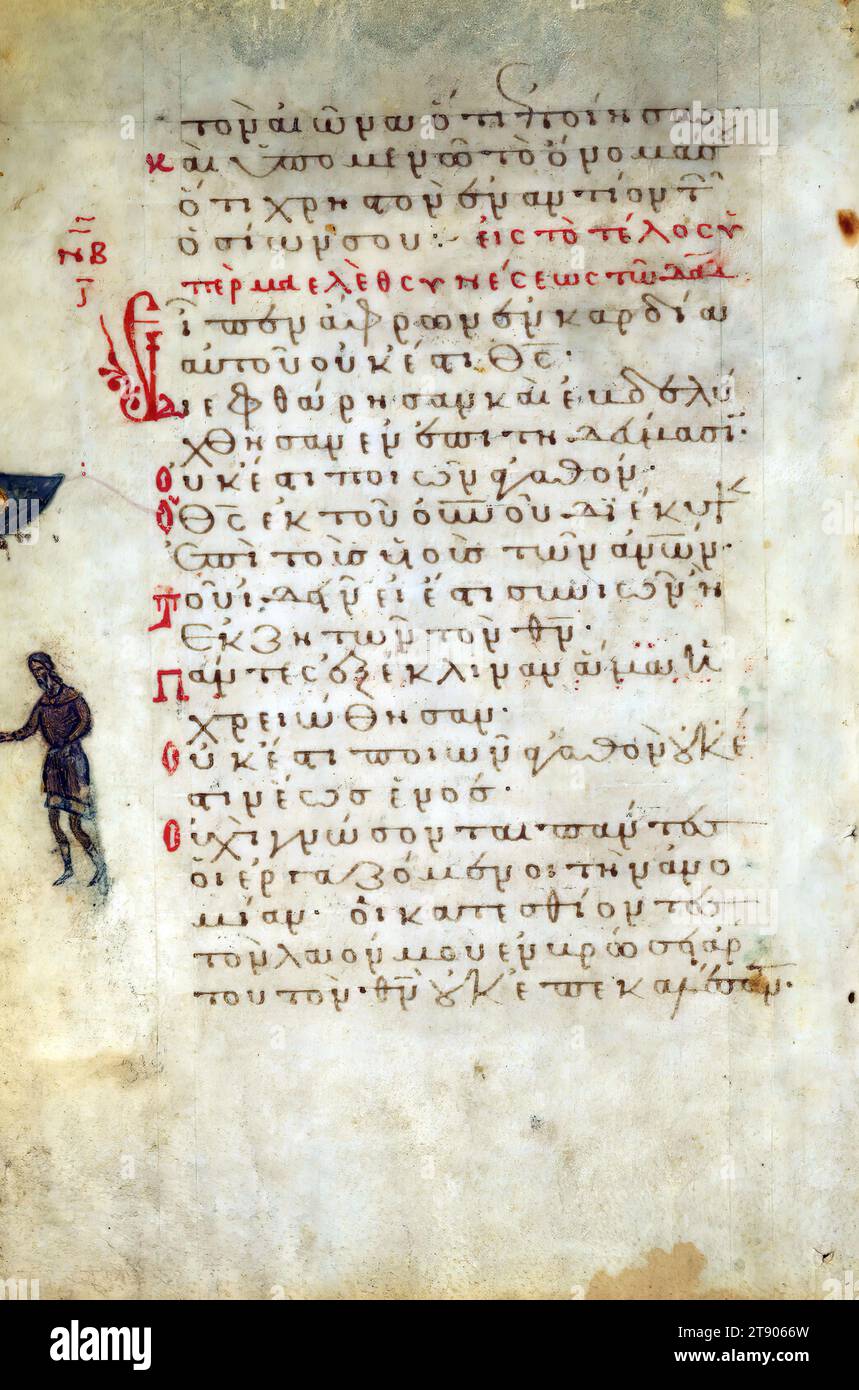 τὸν αἰῶνα ὅτι ἐποίησας
καὶ ὑπομενῶ τὸ ὄνομά σ
ὅτι χρηστὸν ἐναντίον τῶ
ὁσίων σου: εἰς τὸ τέλος ὑ
ΝΒ
πὲρ μαελὲθ συνέσεως τῶ δαδ
Εἶπεν ἄφρων ἐν καρδία
αυτοῦ οὐκ έστι θς·
Διεφθάρησαν καὶ ἐβδελύ
χθησαν ἐν ἐπιτηδεύμασι·
Οὐκ ἔστι ποιῶν ἀγαθόν·
Ὁ θς ἐκ τοῦ οὐνοῦ διέκυψ
Ἐπὶ τοὺς υἱοὺς τῶν ἀνων·
Τοῦ ἰδεῖν εἰ ἔστι συνιὼν ἢ
Ἐκζητῶν τὸν θν·
Πάντες ἐξέκλιναν ἅμα ἠ
χρειώθησαν·
Οὐκ ἔστι ποιῶν ἀγαθὸν οὐκ ἔ
στιν ἕως ἑνός·
Οὐχὶ γνώσονται πάντες
οἱ ἐργαζόμενοι τὴν ἀνο
μίαν· οἱ κατεσθίοντες
τὸν λαόν μου ἐν βρώσει ἄρ
του τὸν θν οὐκ ἐπεκαλέσαν·
alamy
Image ID: 2T9066W
www.alamy.com